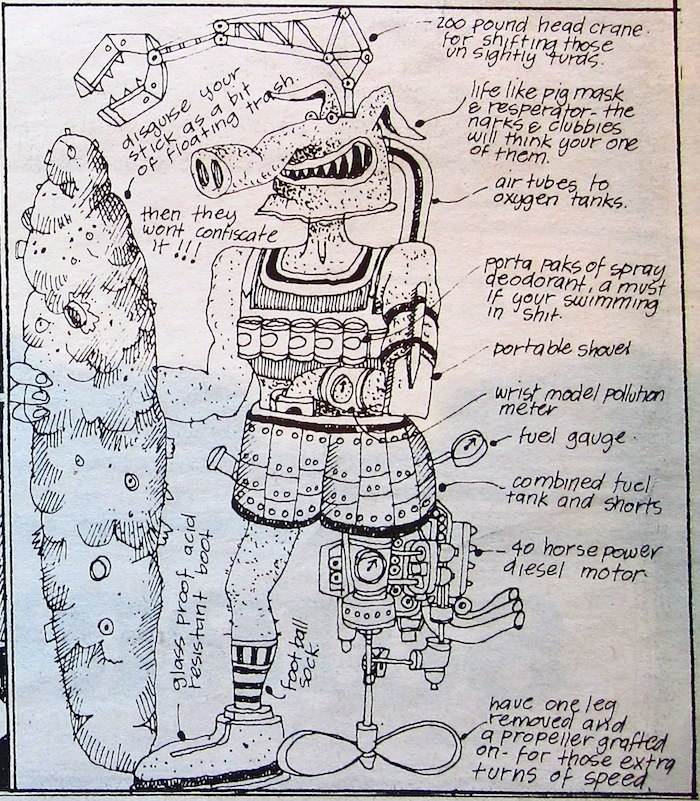 200 pound head crane.
for shifting those
un sightly turds.
disguise your
stick as a bit
of floating trash.
then they
wont confiscate
it !!!
life like pig mask
& resperator - the
narks & clubbies
will think your one
of them.
air tubes to
oxygen tanks.
porta paks of spray
deodorant, a must
if your swimming
in shit.
portable shovel
wrist model pollution
meter
fuel gauge.
combined fuel
tank and shorts
40 horse power
diesel motor
glass proof acid
resistant boot
football
sock.
have one leg
removed and
a propeller grafted
on - for those extra
turns of speed.